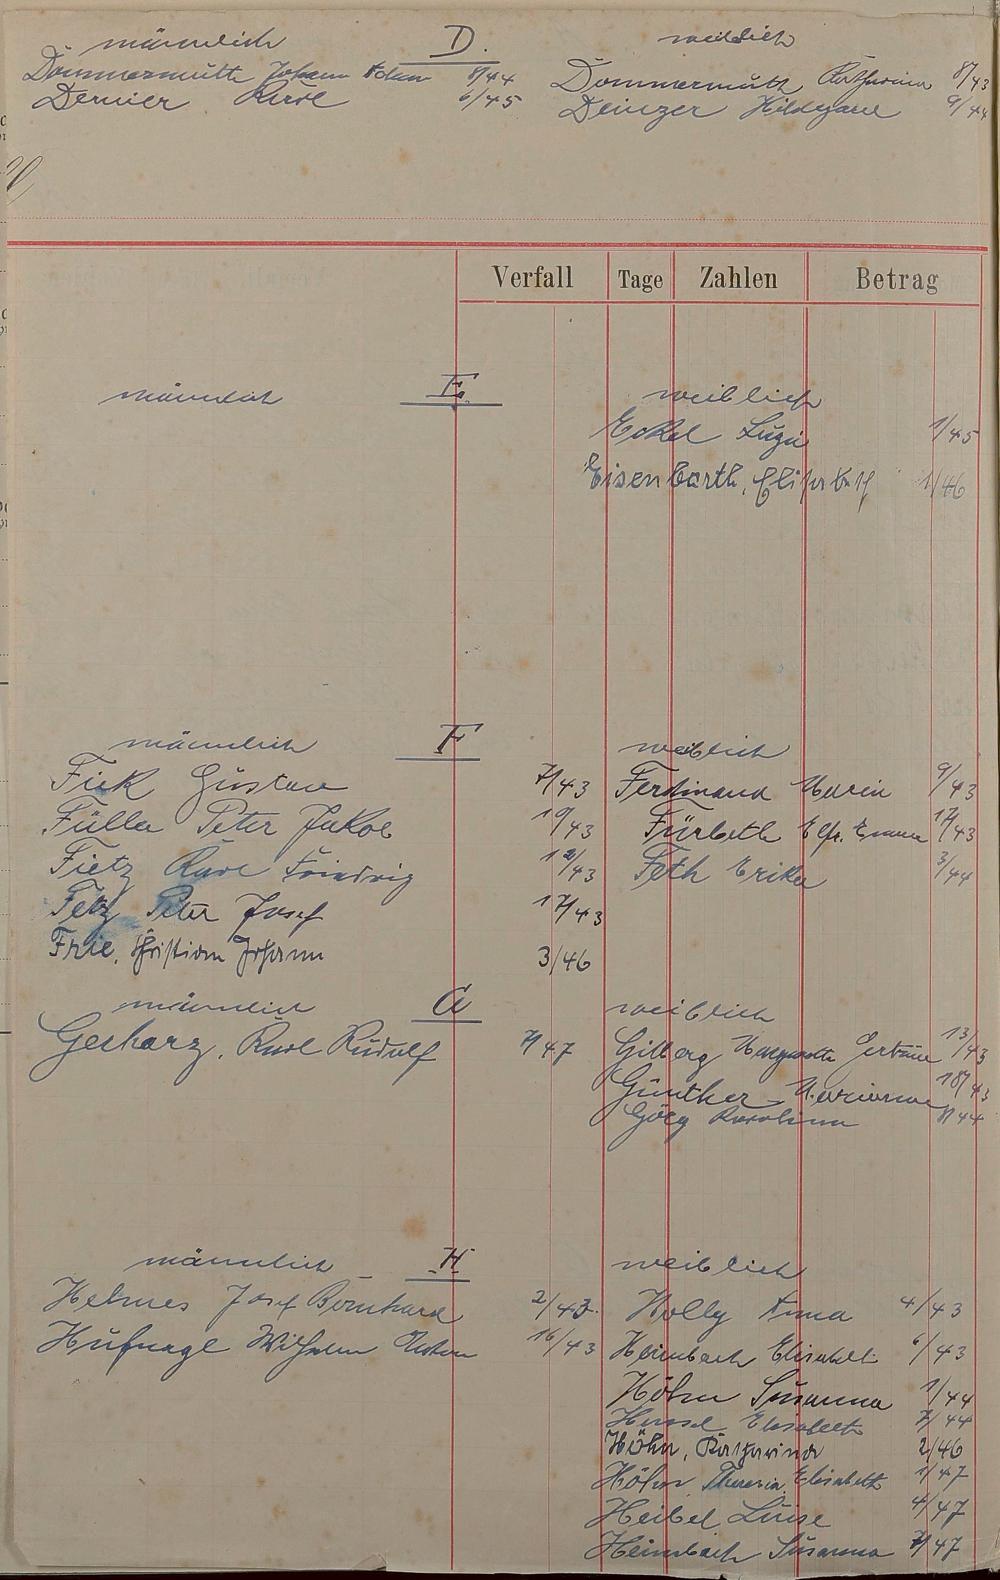 männlich D. weiblich
Dommermuth Johann Adam 8/44 Dommermuth Katharina 8/43
Dernier Karl 6/45 Deinzer Hildegard 9/44
Verfall Tage Zahlen Betrag
männlich E. weiblich
Eckel Luzie 1/45
Eisenbarth, Elisabeth 1/46
männlich F weiblich
Fick Gustav 7/43 Ferdinand Maria 9/43
Fülla Peter Jakob 10/43 Fürbeth Emma 17/43
Fietz Karl Friedrich 12/43 Feth Erika 3/44
Fetz Peter Josef 17/43
Frie, Christian Johann 3/46
männlich G weiblich
Gerharz, Karl Rudolf 7/47 Gilberg Margarethe Gertrud 13/43
Günther Marianne 18/43
Görg Karolina 8/44
männlich H weiblich
Helmes Josef Bernhard 2/43. Holly Anna 4/43
Hufnagel Wilhelm Anton 16/43 Heimbach Elisabeth 6/43
Höhn Susanna 1/44
Elisabeth 7/44
Höhn, Katharina 2/46
Höhn Theresia Elisabeth 1/47
Heibel Luise 4/47
Heimbach Susanna 7/47